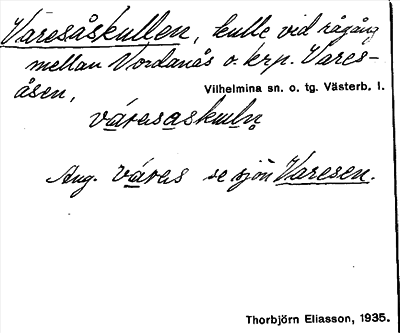 Varesåskullen, kulle vid rågång
mellan Nordanås o. krp. Vares-
åsen,
Vilhelmina sn. o. tg. Västerb. l.
váresaskuln
Ang. váres se sjön Varesen.
Thorbjörn Eliasson, 1935.